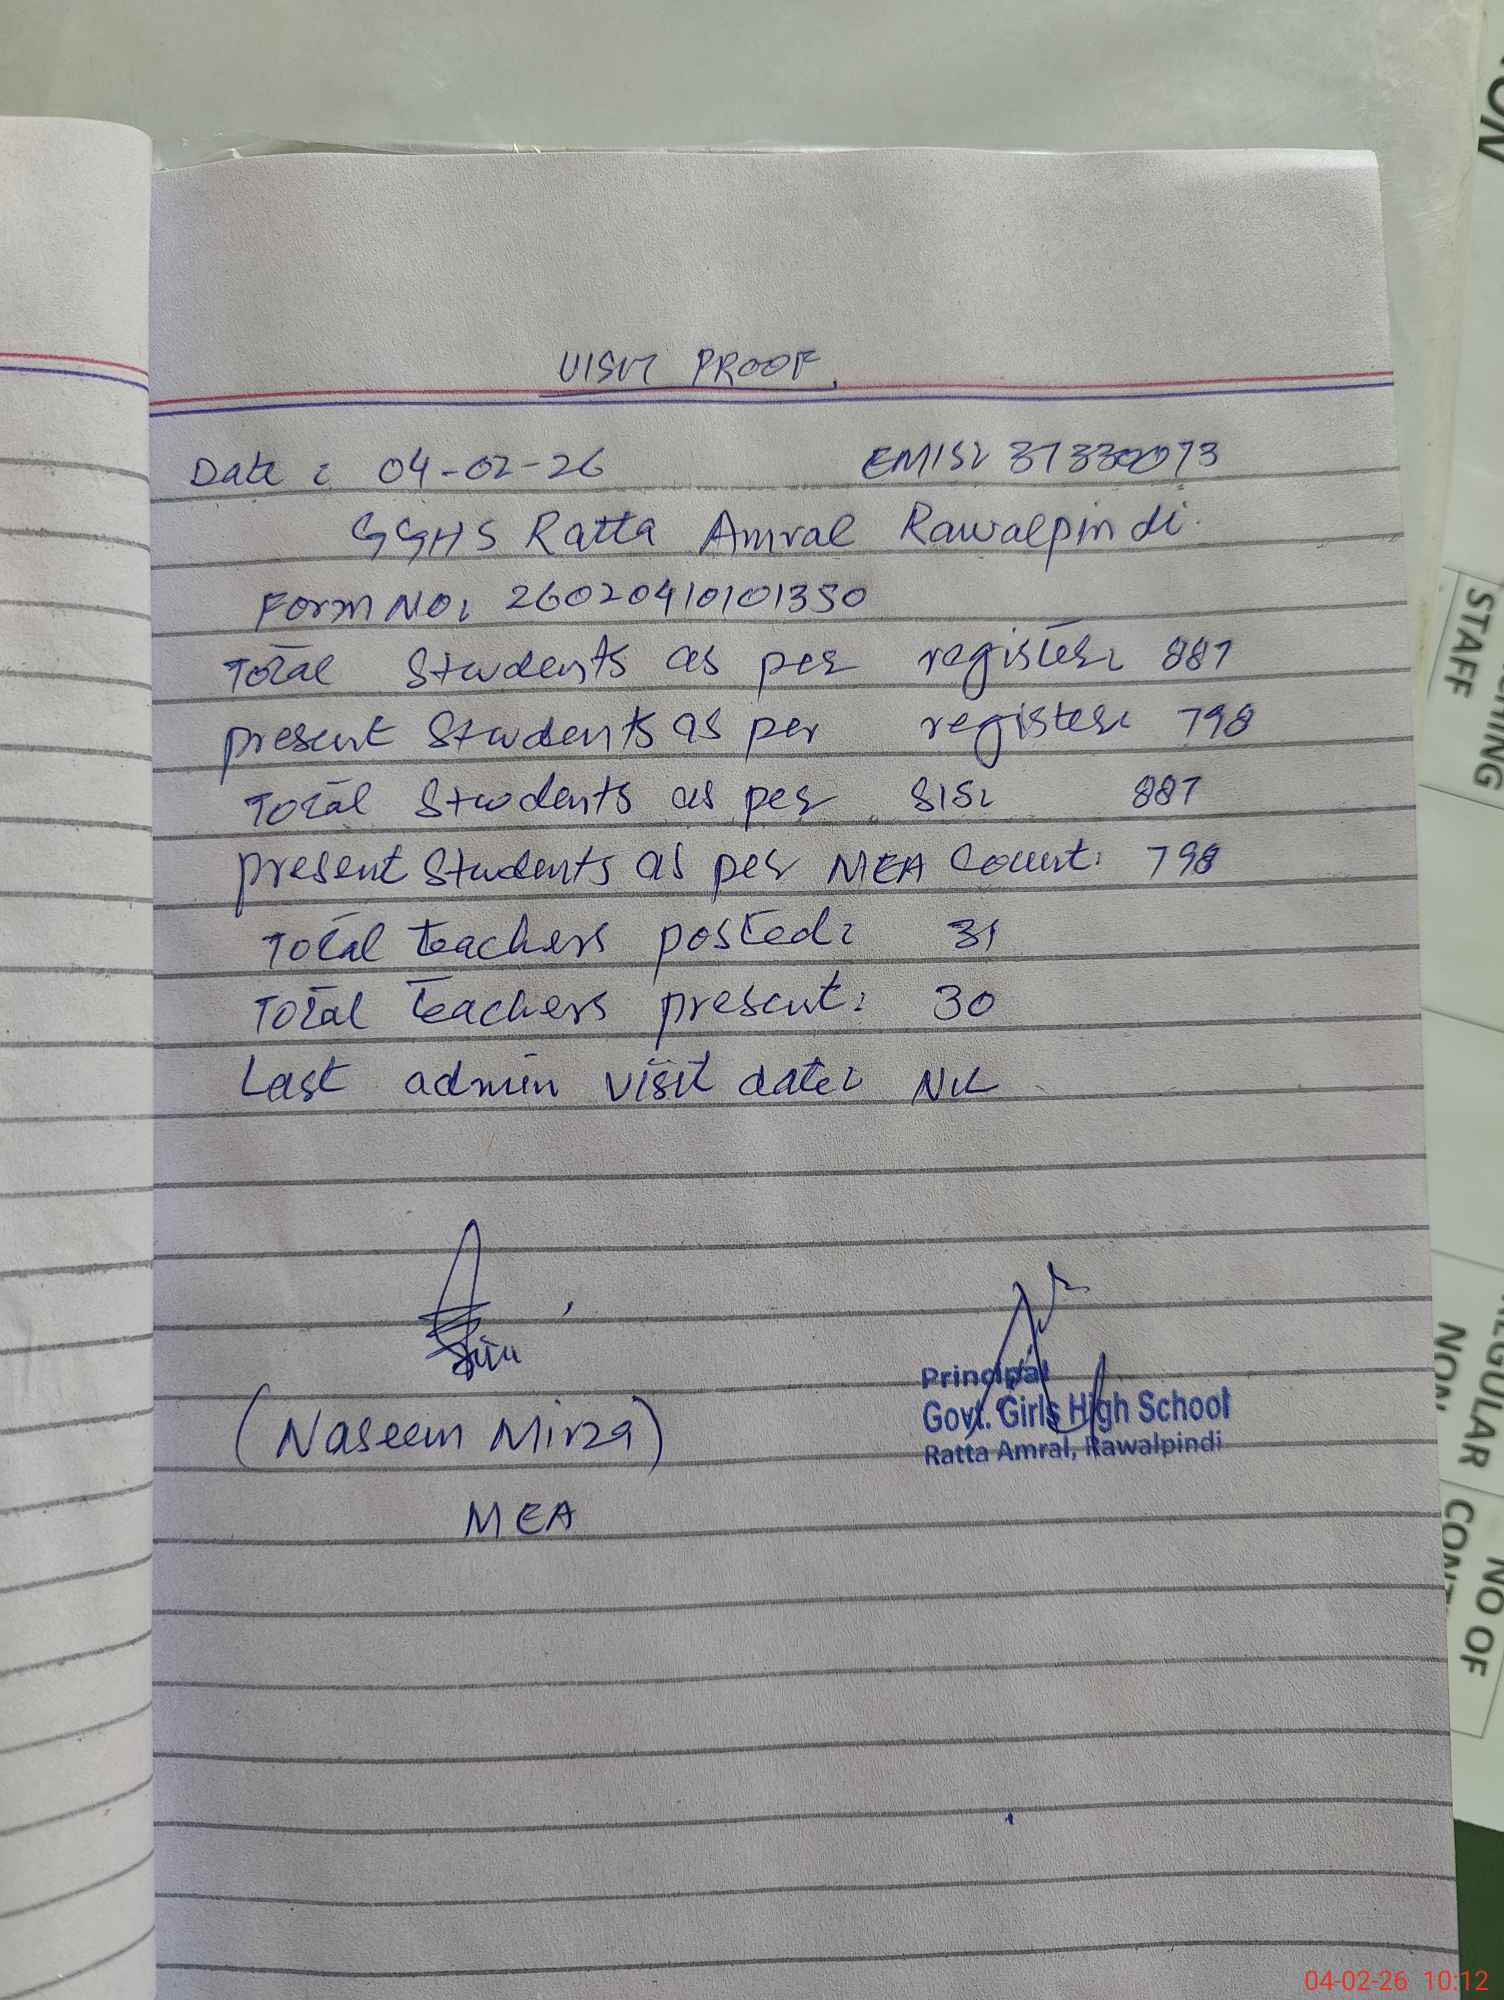 VISIT PROOF
Date: 04-02-26 EMIS: 37330073
GGHS Ratta Amral Rawalpindi
Form NO: 26020410101350
Total Students as per register: 887
present Students as per register: 798
Total Students as per SIS: 887
present Students as per MEA Count: 798
Total teachers posted: 31
Total teachers present: 30
Last admin visit date: NIL
(Naseem Mirza)
MEA
Principal
Govt. Girls High School
Ratta Amral, Rawalpindi
STAFF
REGULAR
NON
NO OF
04-02-26 10:12